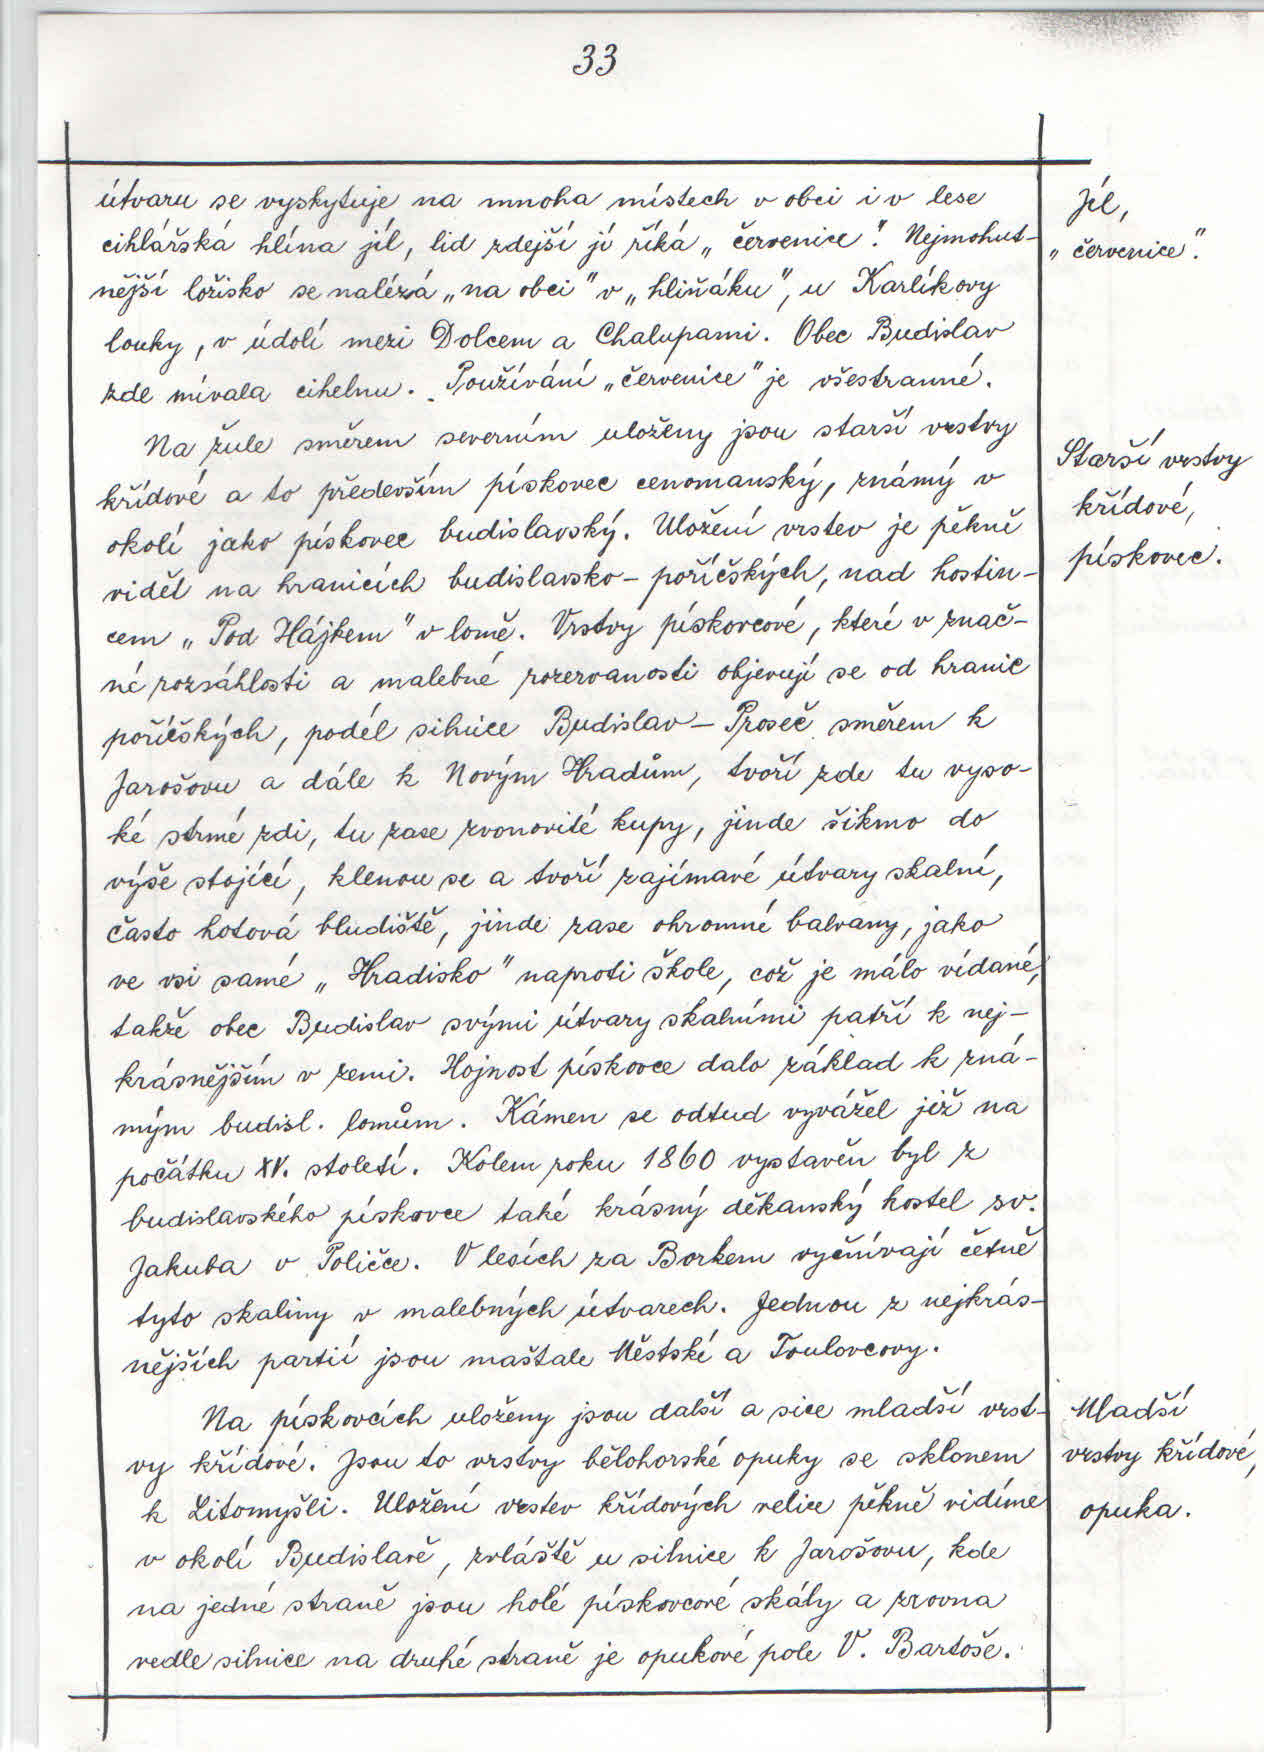 33
útvaru se vyskytuje na mnoha místech v obci i v lese
cihlářská hlína jíl, lid zdejší jí říká „červenice". Nejmohut-
nější ložisko se nalézá „na obci" v „hliňáku", u Karlíkovy
louky, v údolí mezi Dolcem a Chalupami. Obec Budislav
zde mívala cihelnu. Používání „červenice" je všestranné.
Na žule směrem severním uloženy jsou starší vrstvy
křídové a to především pískovec cenomanský, známý v
okolí jako pískovec budislavský. Uložení vrstev je pěkně
viděl na hranicích budislavsko - poříčských, nad hostin-
cem „Pod Hájkem" v lomě. Vrstvy pískovcové, které v znač-
né rozsáhlosti a malebné rozervanosti objevují se od hranic
poříčských, podél silnice Budislav - Proseč směrem k
Jarošovu a dále k Novým Hradům, tvoří zde tu vyso-
ké strmé zdi, tu zase zvonovité kupy, jinde šikmo do
výše stojící, klenou se a tvoří zajímavé útvary skalní,
často hotová bludiště, jinde zase ohromné balvany, jako
ve vsi samé „Hradisko" naproti škole, což je málo vídané,
takže obec Budislav svými útvary skalními patří k nej-
krásnějším v zemi. Hojnost pískovce dalo základ k zná-
mým budisl. lomům. Kámen se odtud vyvážel již na
počátku XV. století. Kolem roku 1860 vystavěn byl z
budislavského pískovce také krásný děkanský kostel sv.
Jakuba v Poličce. V lesích za Borkem vyčnívají četně
tyto skaliny v malebných útvarech. Jednou z nejkrás-
nějších partií jsou maštale Městské a Toulovcovy.
Na pískovcích uloženy jsou další a sice mladší vrst-
vy křídové. Jsou to vrstvy bělohorské opuky se sklonem
k Litomyšli. Uložení vrstev křídových velice pěkně vidíme
v okolí Budislavě, zvláště u silnice k Jarošovu, kde
na jedné straně jsou holé pískovcové skály a zrovna
vedle silnice na druhé straně je opukové pole V. Bartoše.
Jíl,
„červenice".
Starší vrstvy
křídové,
pískovec.
Mladší
vrstvy křídové,
opuka.